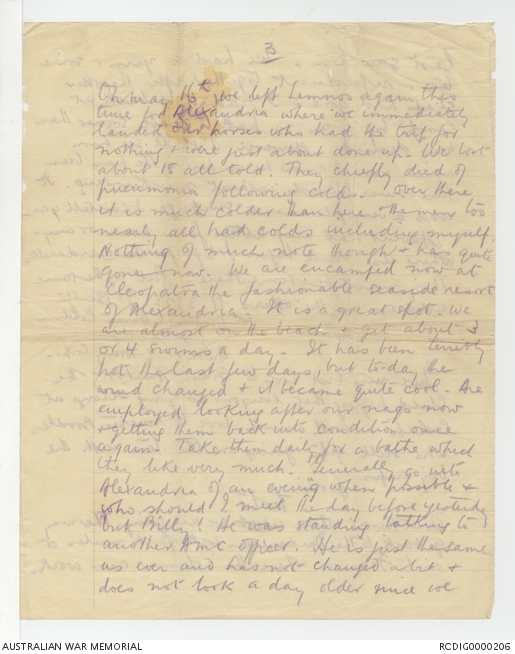 3
On May 16th we left Lemnos again this
time for Alexandria where we immediately
landed our horses who had the trip for
nothing & were just about done up. We lost
about 18 all told. They chiefly died of
pneumonia following colds. Over there
it is much colder than here & the men too
nearly all had colds including myself.
Nothing of much note though & has quite
gone now. We are encamped now at
Cleopatra the fashionable seaside resort
of Alexandria. It is a great spot. We
are almost on the beach & get about 3
or 4 swims a day. It has been terribly
hot the last few days, but to-day the
wind changed & it became quite cool. Are
employed looking after our nags now
& getting them back into condition once
again. Take them daily for a bathe which
they like very much. Generally go into
Alexandria of an evening when possible &
who should I meet the day before yesterday
but Bill! He was standing talking to
another AMC officer. He is just the same
as ever and has not changed a bit &
does not look a day older since we
AUSTRALIAN WAR MEMORIAL
RCDIG0000206